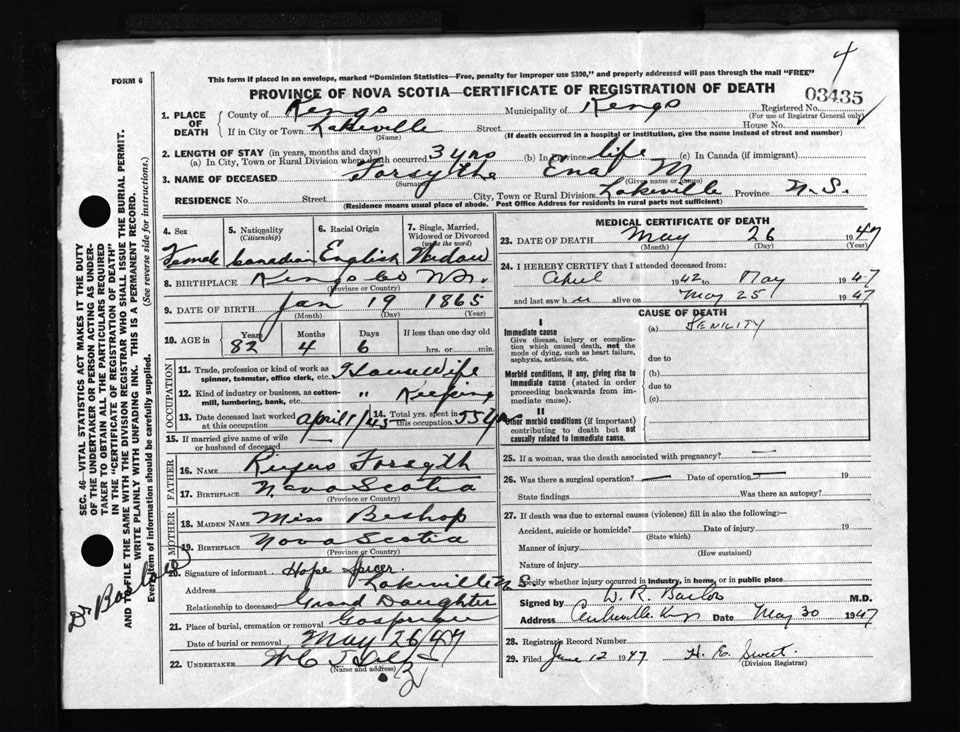 4
FORM 6
This form if placed in an envelope, marked "Dominion Statistics—Free, penalty for improper use $300," and properly addressed will pass through the mail "FREE"
PROVINCE OF NOVA SCOTIA—CERTIFICATE OF REGISTRATION OF DEATH
03435
1. PLACE OF DEATH
County of Kings Municipality of Kings Registered No.
(For use of Registrar General only)
If in City or Town Lakeville Street House No.
(Name) (If death occurred in a hospital or institution, give the name instead of street and number)
2. LENGTH OF STAY (in years, months and days)
(a) In City, Town or Rural Division where death occurred 3 yrs (b) In Province life (c) In Canada (if immigrant)
3. NAME OF DECEASED Forsythe Ena M
(Surname) (Given name or names)
RESIDENCE No. Street City, Town or Rural Division Lakeville Province N.S.
(Residence means usual place of abode. Post Office Address for residents in rural parts not sufficient)
4. Sex 5. Nationality (Citizenship) 6. Racial Origin 7. Single, Married, Widowed or Divorced (write the word)
Female Canadian English Widow
8. BIRTHPLACE Kings Co N.S.
(Province or Country)
9. DATE OF BIRTH Jan 19 1865
(Month) (Day) (Year)
10. AGE in Years Months Days If less than one day old
82 4 6 hrs. or min.
OCCUPATION
11. Trade, profession or kind of work as spinner, teamster, office clerk, etc. House Wife
12. Kind of industry or business, as cotton-mill, lumbering, bank, etc. " Keeping
13. Date deceased last worked at this occupation April 1/45 14. Total yrs. spent in this occupation 55 yrs
15. If married give name of wife or husband of deceased —
FATHER
16. NAME Rufus Forsyth
17. BIRTHPLACE Nova Scotia
(Province or Country)
MOTHER
18. MAIDEN NAME Miss Bishop
19. BIRTHPLACE Nova Scotia
(Province or Country)
20. Signature of informant Hope Spicer
Address Lakeville N.S.
Relationship to deceased Grand Daughter
21. Place of burial, cremation or removal
Date of burial or removal May 26/47
22. UNDERTAKER
(Name and address)
MEDICAL CERTIFICATE OF DEATH
23. DATE OF DEATH May 26 1947
(Month) (Day) (Year)
24. I HEREBY CERTIFY that I attended deceased from:
April 1942 to May 1947
and last saw her alive on May 25 1947
CAUSE OF DEATH
I
Immediate cause (a) SENILITY
Give disease, injury or complication which caused death, not the mode of dying, such as heart failure, asphyxia, asthenia, etc.
due to
Morbid conditions, if any, giving rise to immediate cause (stated in order proceeding backwards from immediate cause).
(b)
due to
(c)
II
Other morbid conditions (if important) contributing to death but not causally related to immediate cause.
25. If a woman, was the death associated with pregnancy? —
26. Was there a surgical operation? — Date of operation — 19
State findings Was there an autopsy?
27. If death was due to external causes (violence) fill in also the following:—
Accident, suicide or homicide? Date of injury 19
(State which)
Manner of injury
(How sustained)
Nature of injury
Specify whether injury occurred in industry, in home, or in public place
Signed by M.D.
Address Date May 30 1947
28. Registrar's Record Number
29. Filed June 12 1947 H. E. Sweet
(Division Registrar)
SEC. 46—VITAL STATISTICS ACT MAKES IT THE DUTY
OF THE UNDERTAKER OR PERSON ACTING AS UNDER-
TAKER TO OBTAIN ALL THE PARTICULARS REQUIRED
IN THE "CERTIFICATE OF REGISTRATION OF DEATH"
AND TO FILE THE SAME WITH THE DIVISION REGISTRAR WHO SHALL ISSUE THE BURIAL PERMIT.
WRITE PLAINLY WITH UNFADING INK. THIS IS A PERMANENT RECORD.
Every item of information should be carefully supplied. (See reverse side for instructions.)